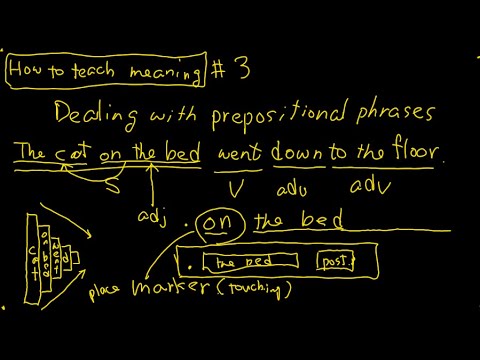 How to teach meaning #3
Dealing with prepositional phrases
The cat on the bed went down to the floor.
V adv adv
adj
. on the bed
. the bed post.
place marker (touching)
cat
on bed
went
d